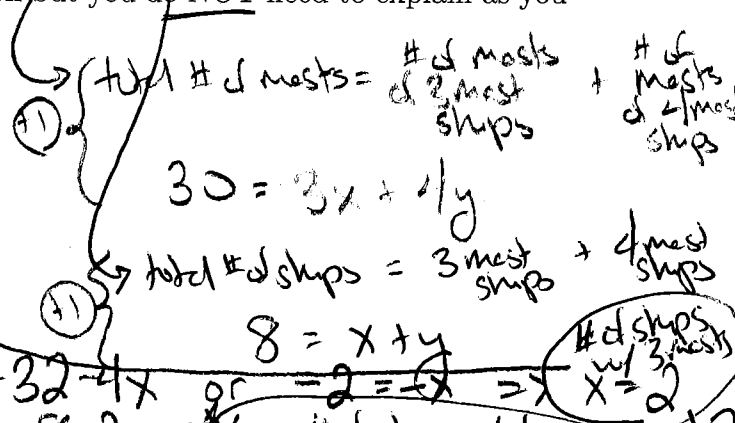 but you do NOT need to explain as you
total # of masts = # of masts of 3 mast ships + # of masts of 4 mast ships
+1
30 = 3x + 4y
total # of ships = 3 mast ships + 4 mast ships
+1
8 = x + y
# of ships w/ 3 masts
32 - 4x or -2 = -x => x = 2